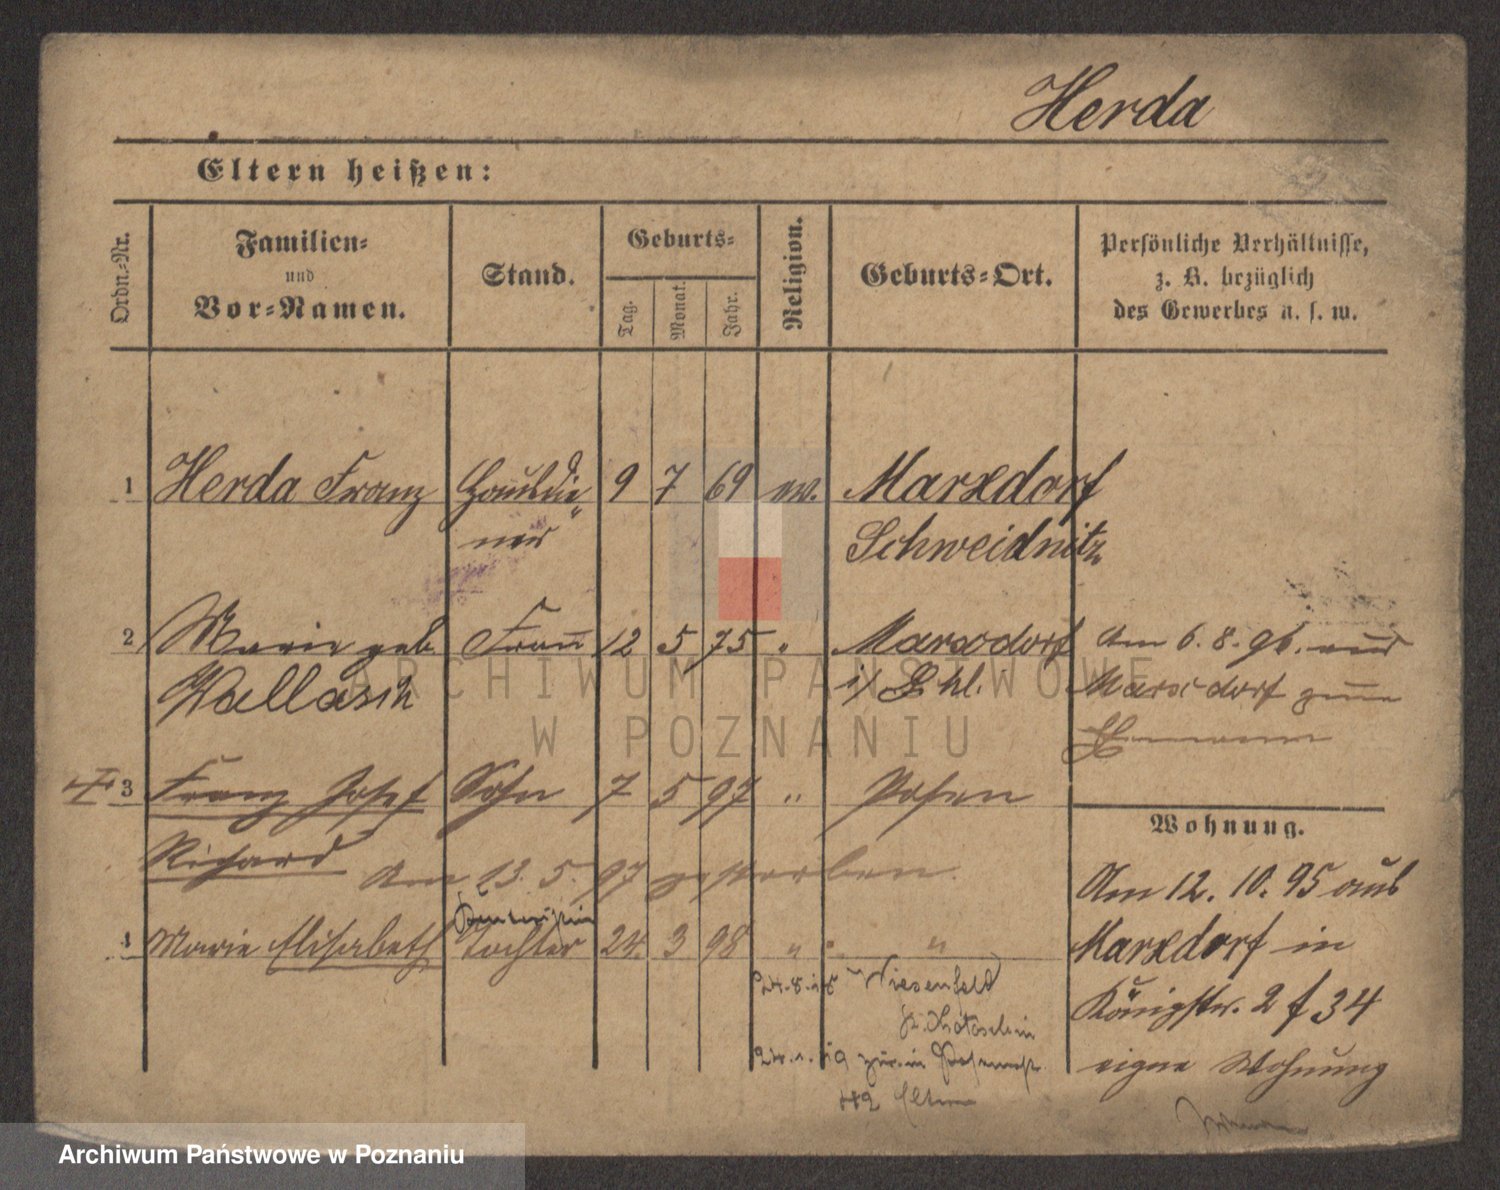 Herda
Eltern heißen:
Ordn.-Nr.
Familien-
und
Vor-Namen.
Stand.
Geburts-
Tag.
Monat.
Jahr.
Religion.
Geburts-Ort.
Persönliche Verhältnisse,
z. B. bezüglich
des Gewerbes u. s. w.
1 Herda Franz 9 7 69 ev. Marxdorf
Schweidnitz
2 Marie geb. Frau 12 5 75 " Marxdorf
Wallasch i/Schl.
Am 6.8.96. aus
Marxdorf zum
Ehemann
3 Franz Josef Sohn 7 5 97 " Posen
Richard
am 13. 5. 97 gestorben.
4 Marie Elisabeth Tochter 24. 3 98 " "
Wiesenfeld
Eltern
Wohnung.
Am 12. 10. 95 aus
Marxdorf in
Königstr. 2 f 34
eigne Wohnung
ARCHIWUM PAŃSTWOWE
W POZNANIU
Archiwum Państwowe w Poznaniu